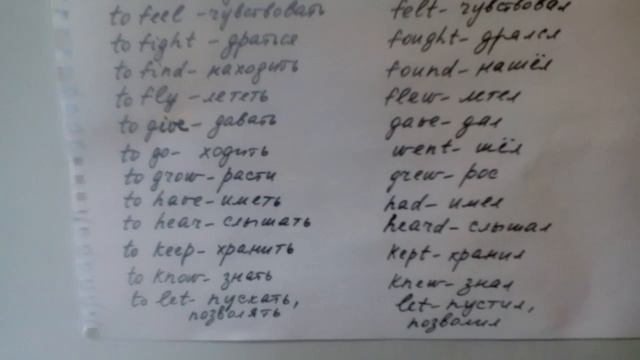 to feel - чувствовать felt - чувствовал
to fight - драться fought - дрался
to find - находить found - нашёл
to fly - лететь flew - летел
to give - давать gave - дал
to go - ходить went - шёл
to grow - расти grew - рос
to have - иметь had - имел
to hear - слышать heard - слышал
to keep - хранить kept - хранил
to know - знать knew - знал
to let - пускать, let - пустил,
позволять позволил